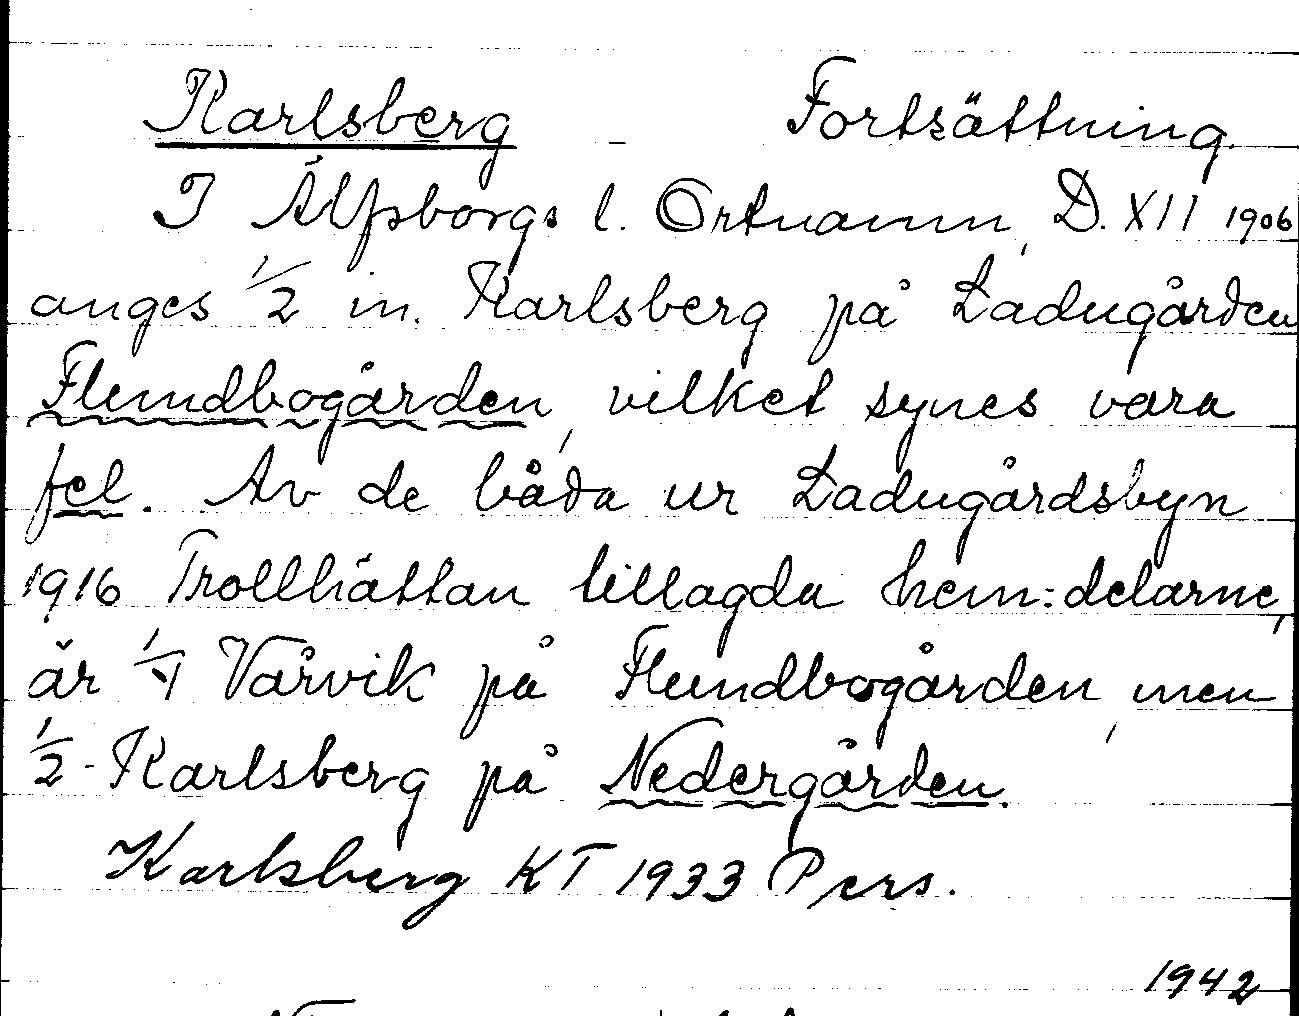 Karlsberg - Fortsättning.
I Älfsborgs l. Ortnamn, D. XII 1906
anges 1/2 m. Karlsberg på Ladugården
Flundbogården, vilket synes vara
fel. Av de båda ur Ladugårdsbyn
1916 Trollhättan tillagda hem:delarne,
är 1/4 Vårvik på Flundbogården, men
1/2 - Karlsberg på Nedergården.
Karlsberg KT 1933 Pers.
1942